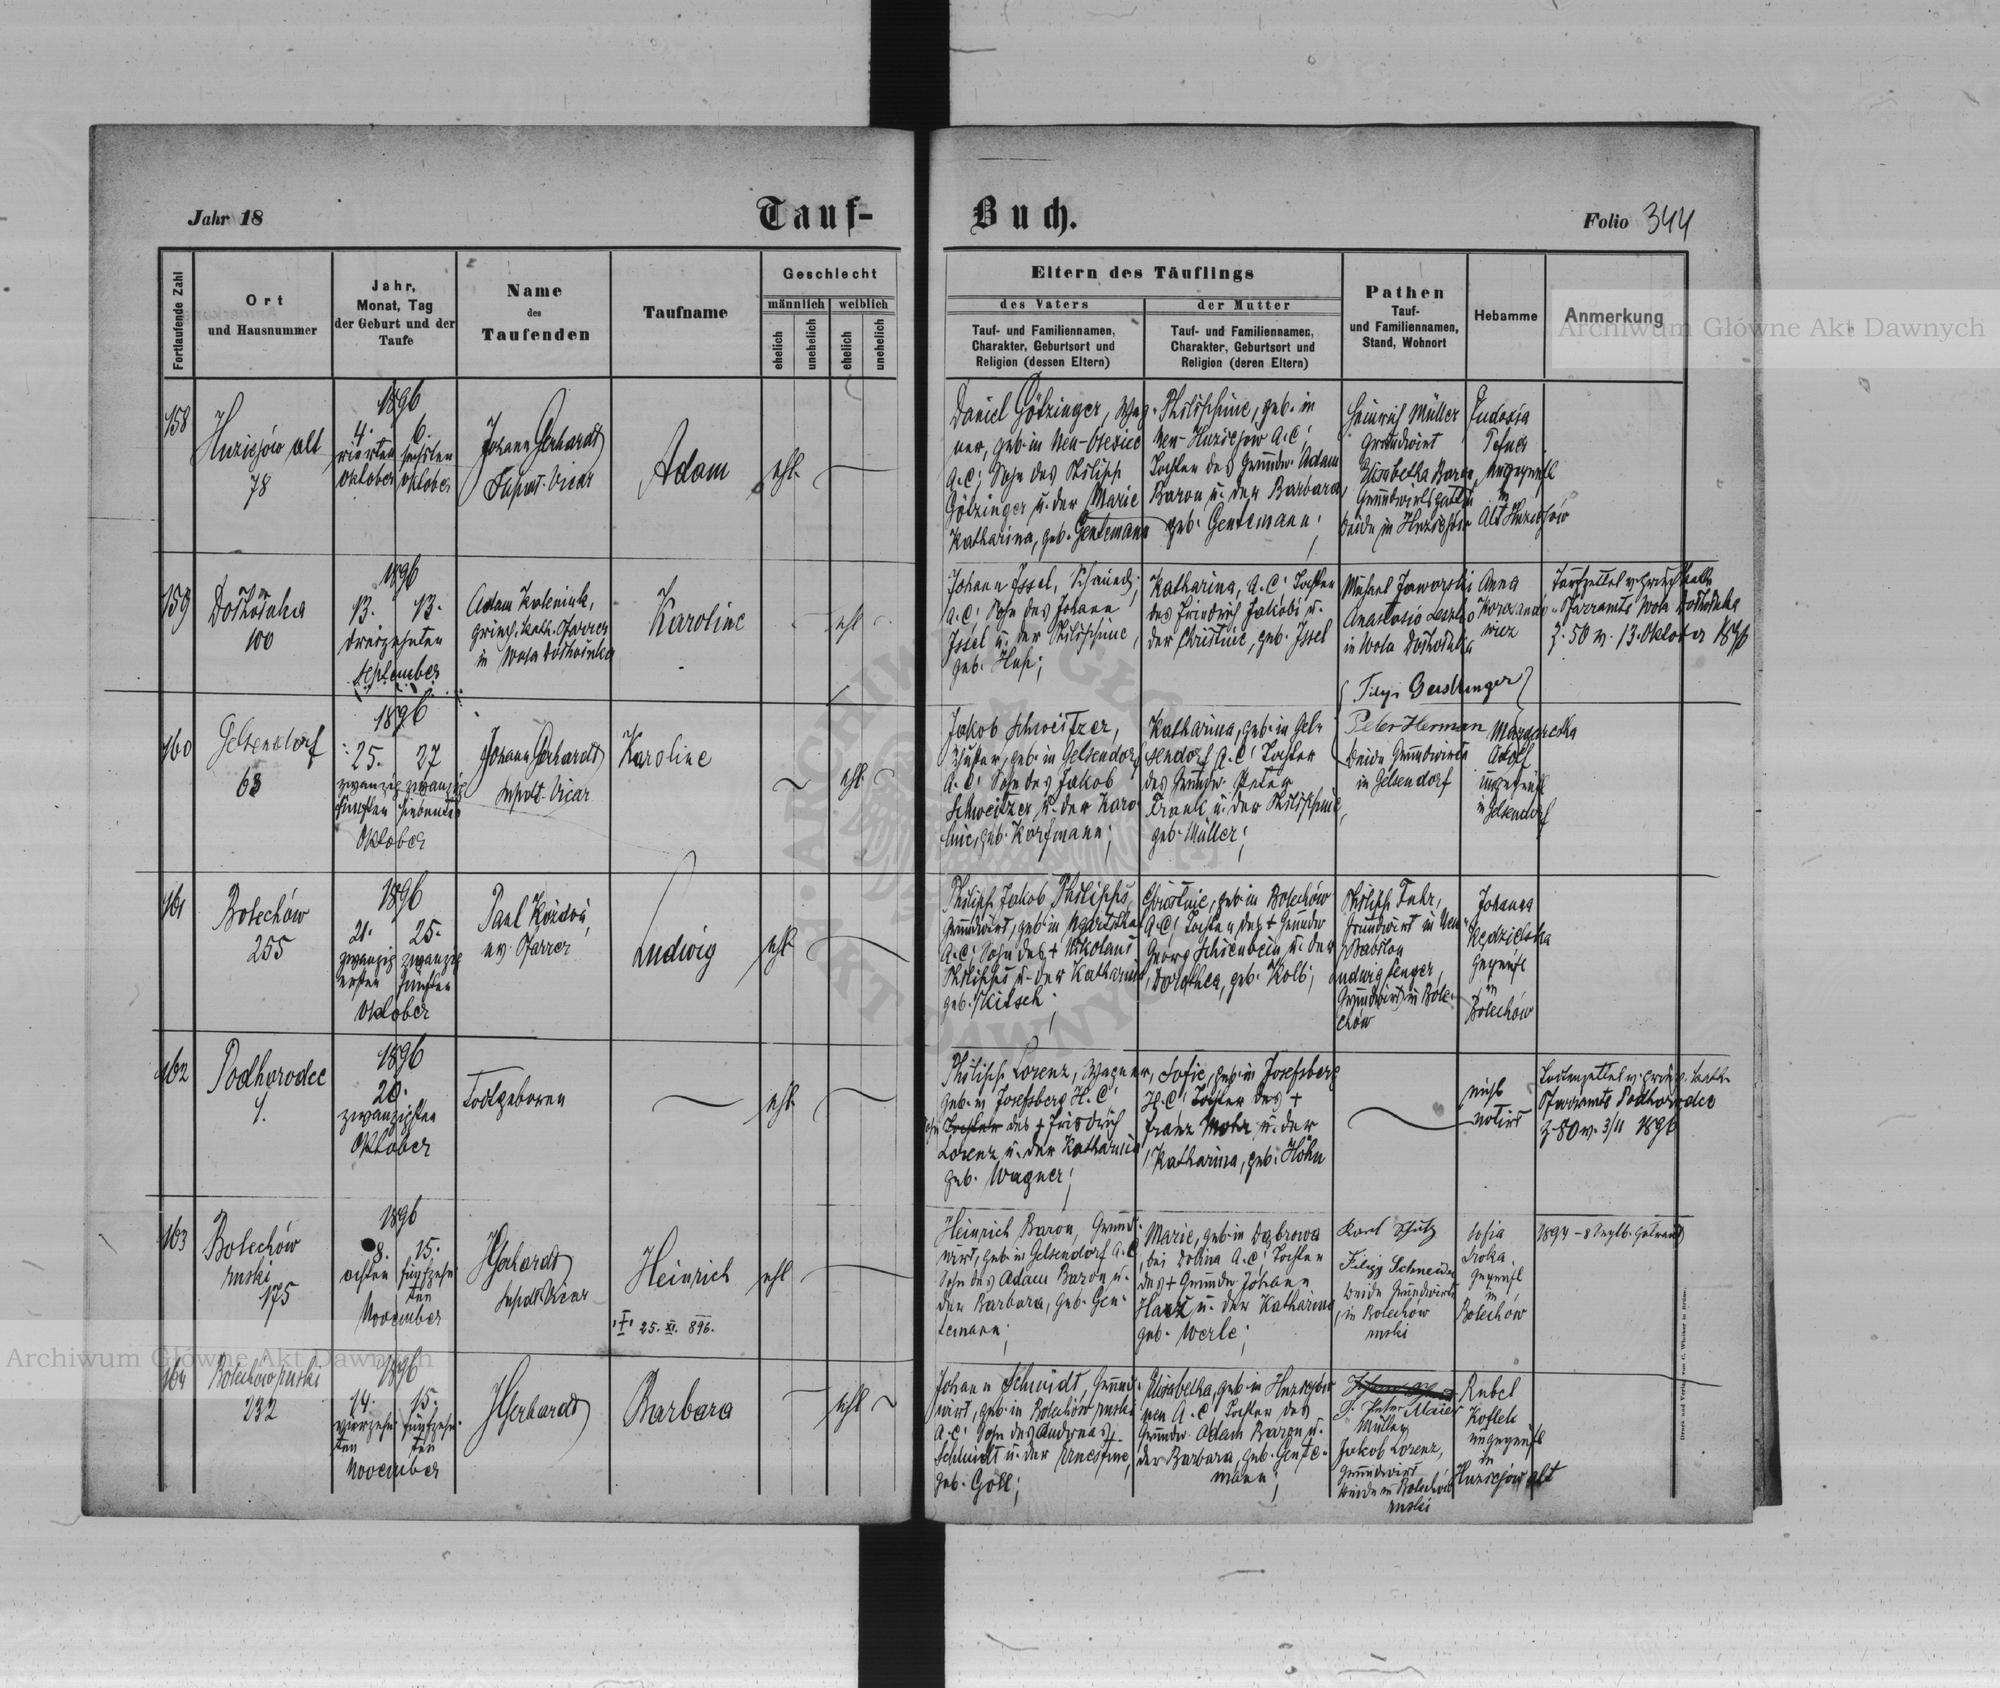 Jahr 18
Tauf-
Buch.
Folio 344
Fortlaufende Zahl
Ort
und Hausnummer
Jahr,
Monat, Tag
der Geburt und der
Taufe
Name
des
Taufenden
Taufname
Geschlecht
männlich weiblich
ehelich
unehelich
ehelich
unehelich
Eltern des Täuflings
des Vaters
Tauf- und Familiennamen,
Charakter, Geburtsort und
Religion (dessen Eltern)
der Mutter
Tauf- und Familiennamen,
Charakter, Geburtsort und
Religion (deren Eltern)
Pathen
Tauf-
und Familiennamen,
Stand, Wohnort
Hebamme
Anmerkung
Archiwum Główne Akt Dawnych
158
Huziejów alt
78
1896
4. 6.
vierten sechsten
Oktober Oktober
Johann Gerhardt
Supdt. Vicar
Adam
ehl.
Daniel Götzinger, Wag-
ner, geb. in Neu-Olexice
A.C., Sohn des Philipp
Götzinger u. der Marie
Katharina, geb. Gentemann
Philippine, geb. in
Neu-Huziejow A.C.,
Tochter des Grundw. Adam
Baron u. der Barbara,
geb. Gentemann;
Heinrich Müller
Grundwirt
Elisabetha Baron,
Grundwirtsgattin
beide in Huziejów
Eudoxia
ungeprüft
in
Alt Huziejów
159
100
1896
13. 13.
dreizehnten
September
Adam
griech. kath. Pfarrer
in Wola
Karoline
ehl.
Johann Issel, Schmied,
A.C., Sohn des Johann
Issel u. der Philippine,
geb. Hass;
Katharina, A.C. Tochter
des Friedrich Jakobi u.
der Christine, geb. Issel
Michael Jaworski
Anastasia
in Wola
Anna
Taufzettel v. griech. kath.
Pfarramts Wola
Z. 50 v. 13. Oktober 1896
160
Gelsendorf
63
1896
25. 27
zwanzig zwanzig
fünften siebenten
Oktober
Johann Gerhardt
Supdt. Vicar
Karoline
ehl.
Jakob Schweitzer,
geb. in Gelsendorf
A.C. Sohn des Jakob
Schweitzer u. der Karo-
line, geb. Korfmann;
Katharina, geb. in Gel-
sendorf A.C. Tochter
des Grundw. Peter
Frank u. der Philippine,
geb. Müller;
Filip Geislinger
Peter Herman
beide Grundwirte
in Gelsendorf
Margaretha
Adolf
ungeprüft
in Gelsendorf
161
Bolechów
255
1896
21. 25.
zwanzig zwanzig
ersten fünften
Oktober
Paul Královú,
ev. Pfarrer
Ludwig
ehl.
Philipp Jakob Philipps,
Grundwirt, geb. in Ugartsthal
A.C. Sohn des + Nikolaus
Philipps u. der Katharina
geb. Skitsch;
Christine, geb. in Bolechów
A.C. Tochter des + Grundw
Georg Schienbein u. der
Dorothea, geb. Kolb;
Philipp Fuhr,
Grundwirt in Neu-
Babilon
Ludwig Senger,
Grundwirt in Bole-
chów
Johanna
Kędzielska
geprüft
in
Bolechów
162
Podhorodce
1.
1896
20.
zwanzigsten
Oktober
Todtgeboren
ehl.
Philipp Lorenz, Wagner,
geb. in Josefsberg H.C.
Sohn Tochter des + Friedrich
Lorenz u. der Katharina
geb. Wagner;
Sofie, geb. in Josefsberg
H.C. Tochter des +
Franz Mohr u. der
Katharina, geb. Höhn
nicht
notirt
Todtenzettel v. griech. kath.
Pfarramts Podhorodce
Z. 80 v. 3/11 1896
163
Bolechów
ruski
175
1896
8. 15.
achten fünfzehn-
ten
November
JGerhardt
Supdt. Vicar
Heinrich
+ 25. XI. 896.
ehl.
Heinrich Baron, Grund-
wirt, geb. in Gelsendorf A.C.
Sohn des Adam Baron u.
der Barbara, geb. Gen-
temann;
Marie, geb. in Dąbrowa
bei Dolina A.C. Tochter
des + Grundw. Johann
Harz u. der Katharina
geb. Werle;
Karl Schutz
Filipp Schneider
beide Grundwirte
in Bolechów
ruski
Sofia
geprüft
in
Bolechów
164
Bolechów ruski
232
1896
14. 15.
vierzehn- fünfzehn-
ten ten
November
JGerhardt
Barbara
ehl.
Johann Schmidt, Grund-
wirt, geb. in Bolechów ruski
A.C. Sohn des Andreas
Schmidt u. der Ernestine,
geb. Göll;
Elisabetha, geb. in Huziejów
neu A.C. Tochter des
Grundw. Adam Baron u.
der Barbara, geb. Gente-
mann;
Peter Maier
Müller
Jakob Lorenz,
Grundwirt
beide in Bolechów
ruski
Rubel
ungeprüft
in
Huziejów alt
Archiwum Główne Akt Dawnych